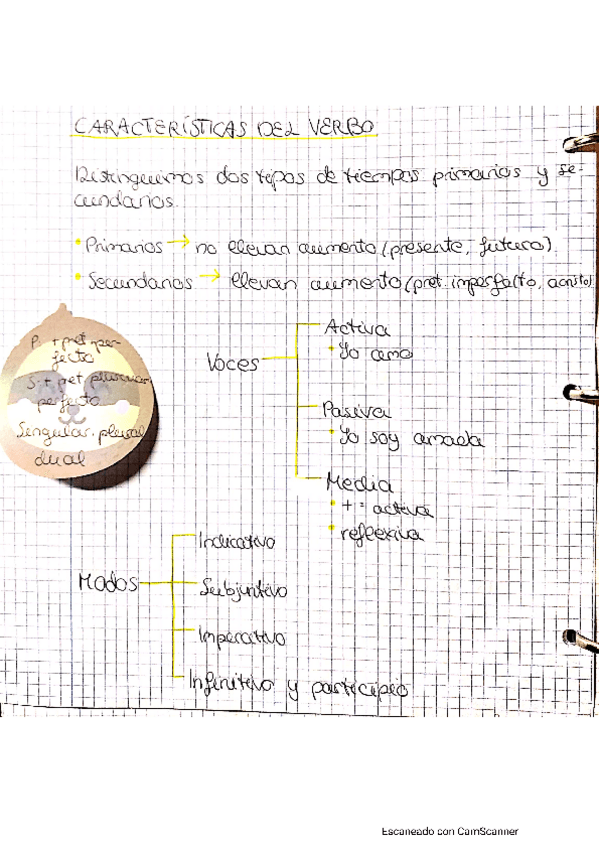 CARACTERÍSTICAS DEL VERBO
Distinguimos dos tipos de tiempos primarios y se-
cundarios.
Primarios → no llevan aumento (presente, futuro).
Secundarios → llevan aumento (pret. imperfecto, aoristo)
P. + pret per-
fecto
S + pret pluscuam
perfecto
Singular, plural
dual
Voces
Activa
Yo amo
Pasiva
Yo soy amada
Media
+ = activa
reflexiva
Modos
Indicativo
Subjuntivo
Imperativo
Infinitivo y participio
Escaneado con CamScanner